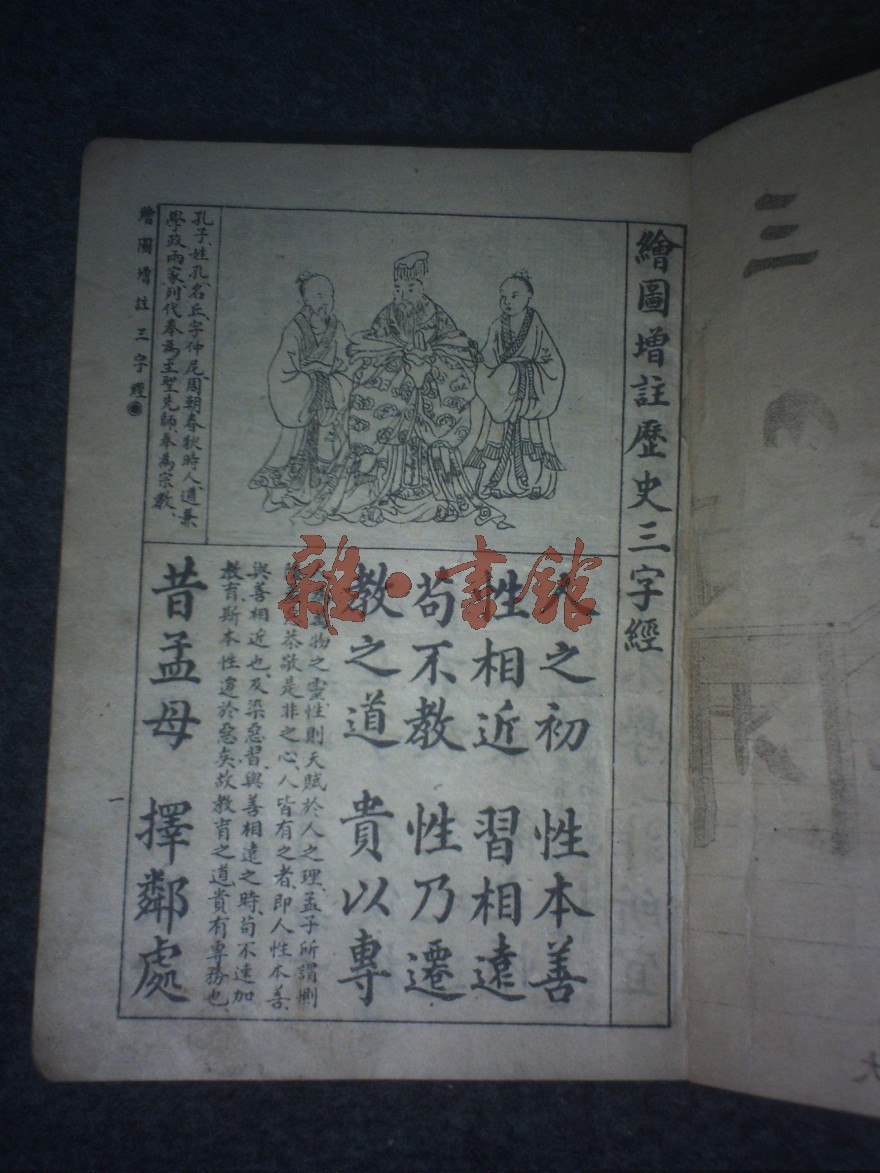 繪圖增註歷史三字經
孔子、姓孔、名丘、字仲尼、周朝春秋時人、道兼
學政兩家、列代奉為至聖先師、奉為宗教、
繪圖增註三字經
人之初 性本善
性相近 習相遠
苟不教 性乃遷
教之道 貴以專
物之靈性則天賦於人之理、孟子所謂惻
恭敬是非之心、人皆有之者、即人性本善、
與善相近也、及染惡習、與善相遠之時、苟不速加
教育、斯本性遷於惡矣、故教育之道、貴有專務也、
昔孟母 擇鄰處
一
三
雜·書館
大